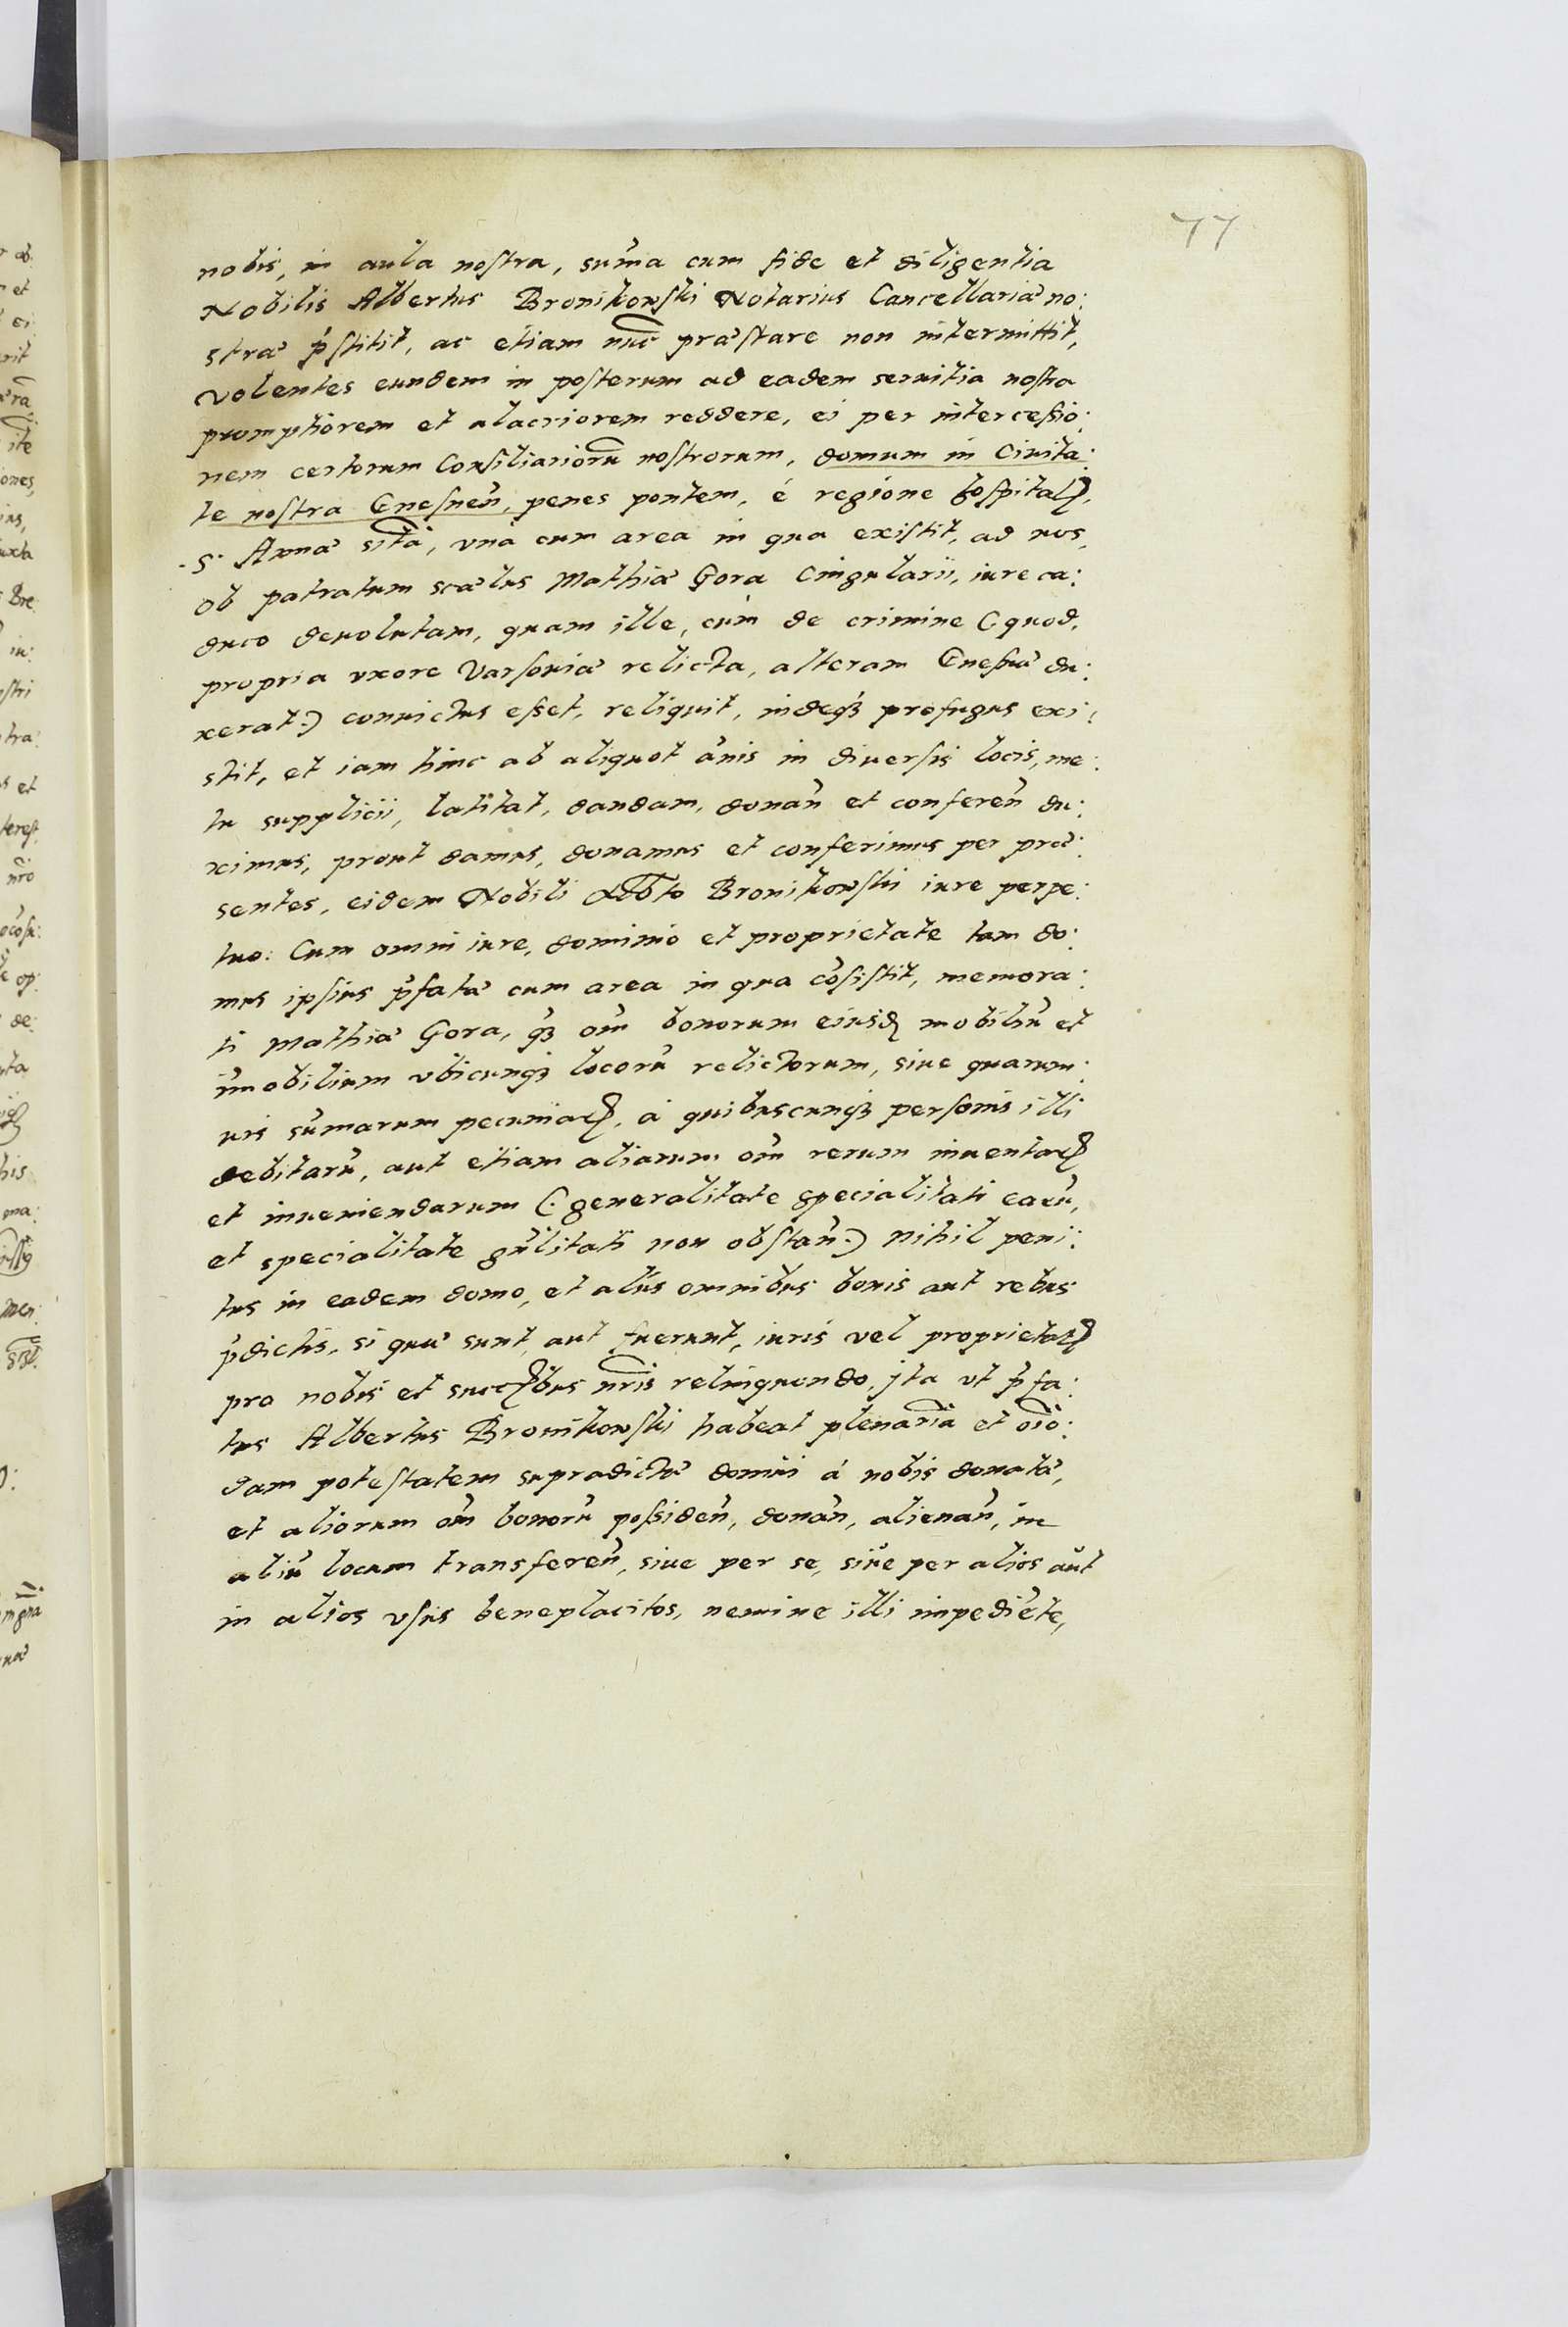 77
nobis, in aula nostra, sum̃a cum fide et diligentia
Nobilis Albertus Bronikowski Notarius Cancellariæ no:
stræ p̃stitit, ac etiam nũc præstare non intermittit,
volentes eundem in posterum ad eadem seruitia nostra
promptiorem et alacriorem reddere, ei per intercessio:
nem certorum Consiliariorũ nostrorum, domum in Ciuita:
te nostra Gnesnen̄, penes pontem, é regione hospitalꝭ,
S. Annæ sitã, vná cum area in qua existit, ad nos,
ob patratum scælus Mathiæ Gora Cingularii, iure ca:
duco deuolutam, quam ille, cum de crimine (quod,
propria vxore Varsouiæ relicta, alteram Gnesnæ du:
xerat:) conuictus esset, reliquit, indeqꝫ profugus exi:
stit, et iam hinc ab aliquot ãnis in diuersis locis, me:
tu supplicii, latitat, dandam, donan̄ et conferen̄ du:
ximus, prout damus, donamus et conferimus per præ:
sentes, eidem Nobili Albto Bronikowski iure perpe:
tuo: Cum omni iure, dominio et proprietate tam do:
mus ipsius p̃fatæ cum area in qua cõsistit, memora:
ti Mathiæ Gora, qꝫ om̃ bonorum eiusdꝭ mobiliũ et
im̃obilium vbicunqꝫ locorũ relictorum, siue quarum:
uis sum̃arum pecuniarꝭ, á quibuscunqꝫ personis illi
debitarũ, aut etiam aliarum om̃ rerum inuentarꝭ
et inueniendarum (:generalitate specialitati earũ,
et specialitate gñlitati non obstan̄:) nihil peni:
tus in eadem domo, et aliis omnibus bonis aut rebus
p̃dictis, si quæ sunt aut fuerunt, iuris vel proprietatꝭ
pro nobis et succꝭbus nr̃is relinquendo, jta vt p̃fa:
tus Albertus Bronikowski habeat plenariã et oĩo:
dam potestatem supradictæ domus á nobis donatæ,
et aliorum om̃ bonorũ possiden̄, donan̄, alienan̄, in
aliũ locum transferen̄, siue per se, siue per alios aut
in alios vsus beneplacitos, nemine illi impediẽte,